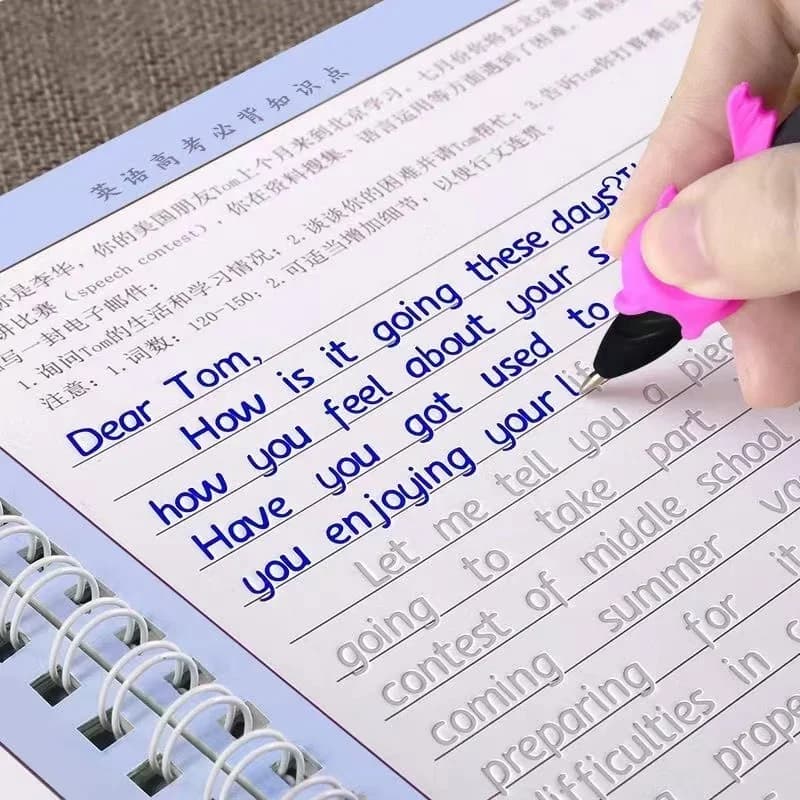 英语高考必背知识点
你是李华，你的美国朋友Tom上个月来到北京学习。七月份你将去北京参
讲比赛（speech contest），你在资料搜集、语言运用等方面遇到了困难。请
写一封电子邮件：
1. 询问Tom的生活和学习情况；2. 谈谈你的困难并请Tom帮忙；3. 告诉Tom你打算赛后去看
注意：1. 词数：120-150；2. 可适当增加细节，以使行文连贯。
Dear Tom,
How is it going these days?
how you feel about your s
Have you got used to
you enjoying your life
Let me tell you a piec
going to take part
contest of middle school
coming summer va
preparing for it
difficulties in c
prope